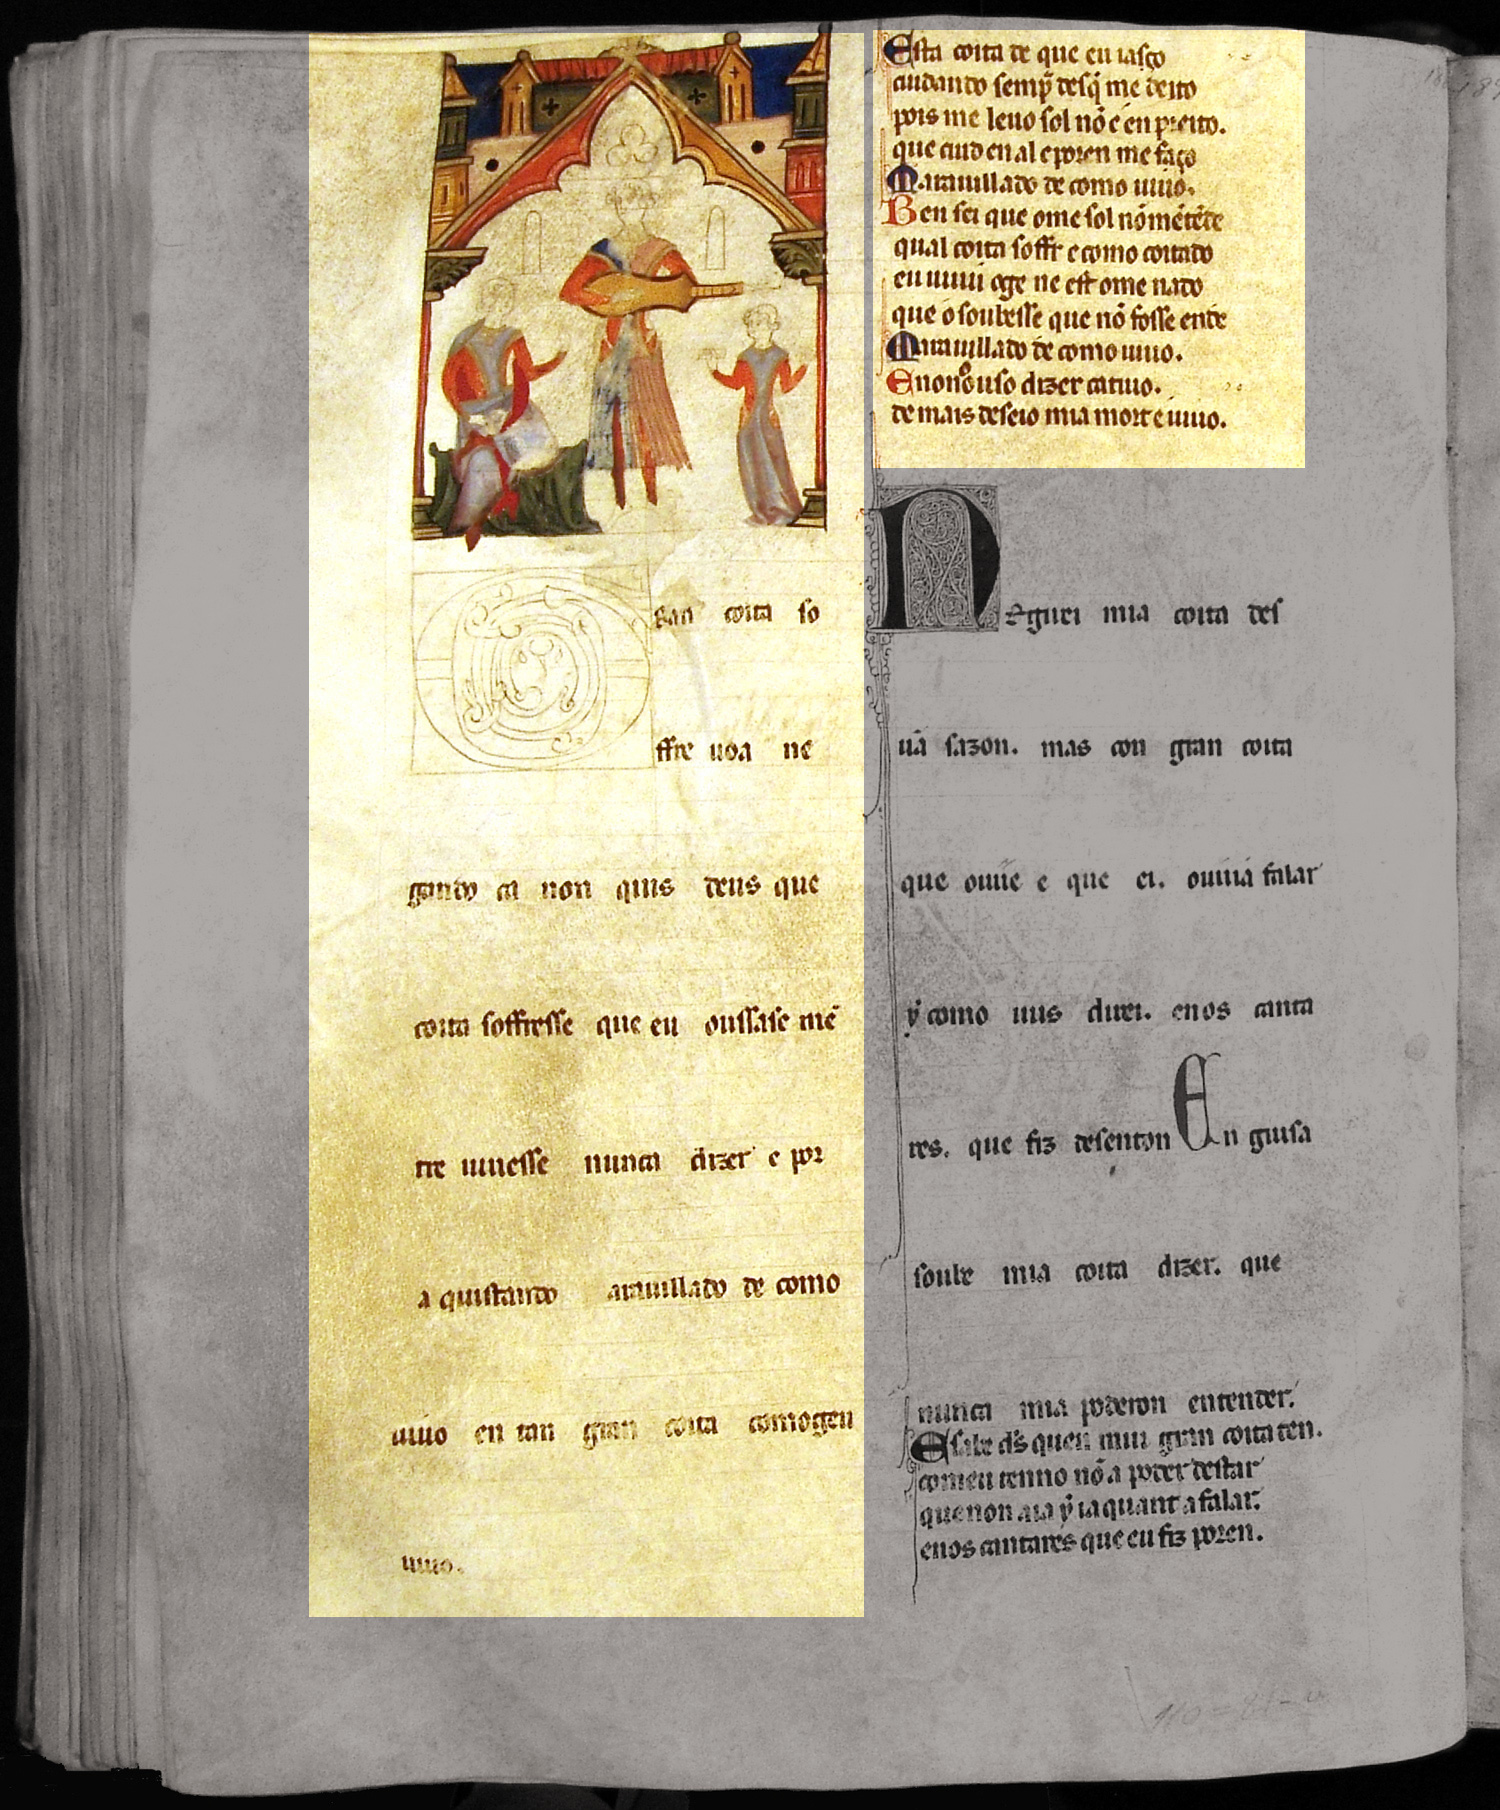 gran coita so
ffre uoa ne
gando ca non quis deus que
coita soffresse que eu oussase mẽ
tre uiuesse nunca dizer e por
a quistando arauillado de como
uiuo en tan gran coita comogeu
uiuo.
Esta coita de que eu iasço
cuidando semp̃ desq̃ me deito
pois me leuo sol nõ é en preito.
que cuid en al e poren me faço
Marauillado de como uiuo.
Ben sei que ome sol nõ mẽ tẽde
qual coita soffr e como coitado
eu uiuui oge ne est ome nado
que o soubesse que nõ fosse ende
Marauillado de como uiuo.
E non o ouso dizer catiuo.
de mais deseio mia mort e uiuo.
Neguei mia coita des
uã sazon. mas con gran coita
que ouue e que ei. ouuia falar
ỹ como uus direi. enos canta
res. que fiz desenton En guisa
soube mia coita dizer. que
nunca mia poderon entender.
E sabe d̃s quen mui gran coita ten.
comeu tenno nõ a poder destar
que non aia ỹ ia quant a falar.
enos cantares que eu fiz poren.